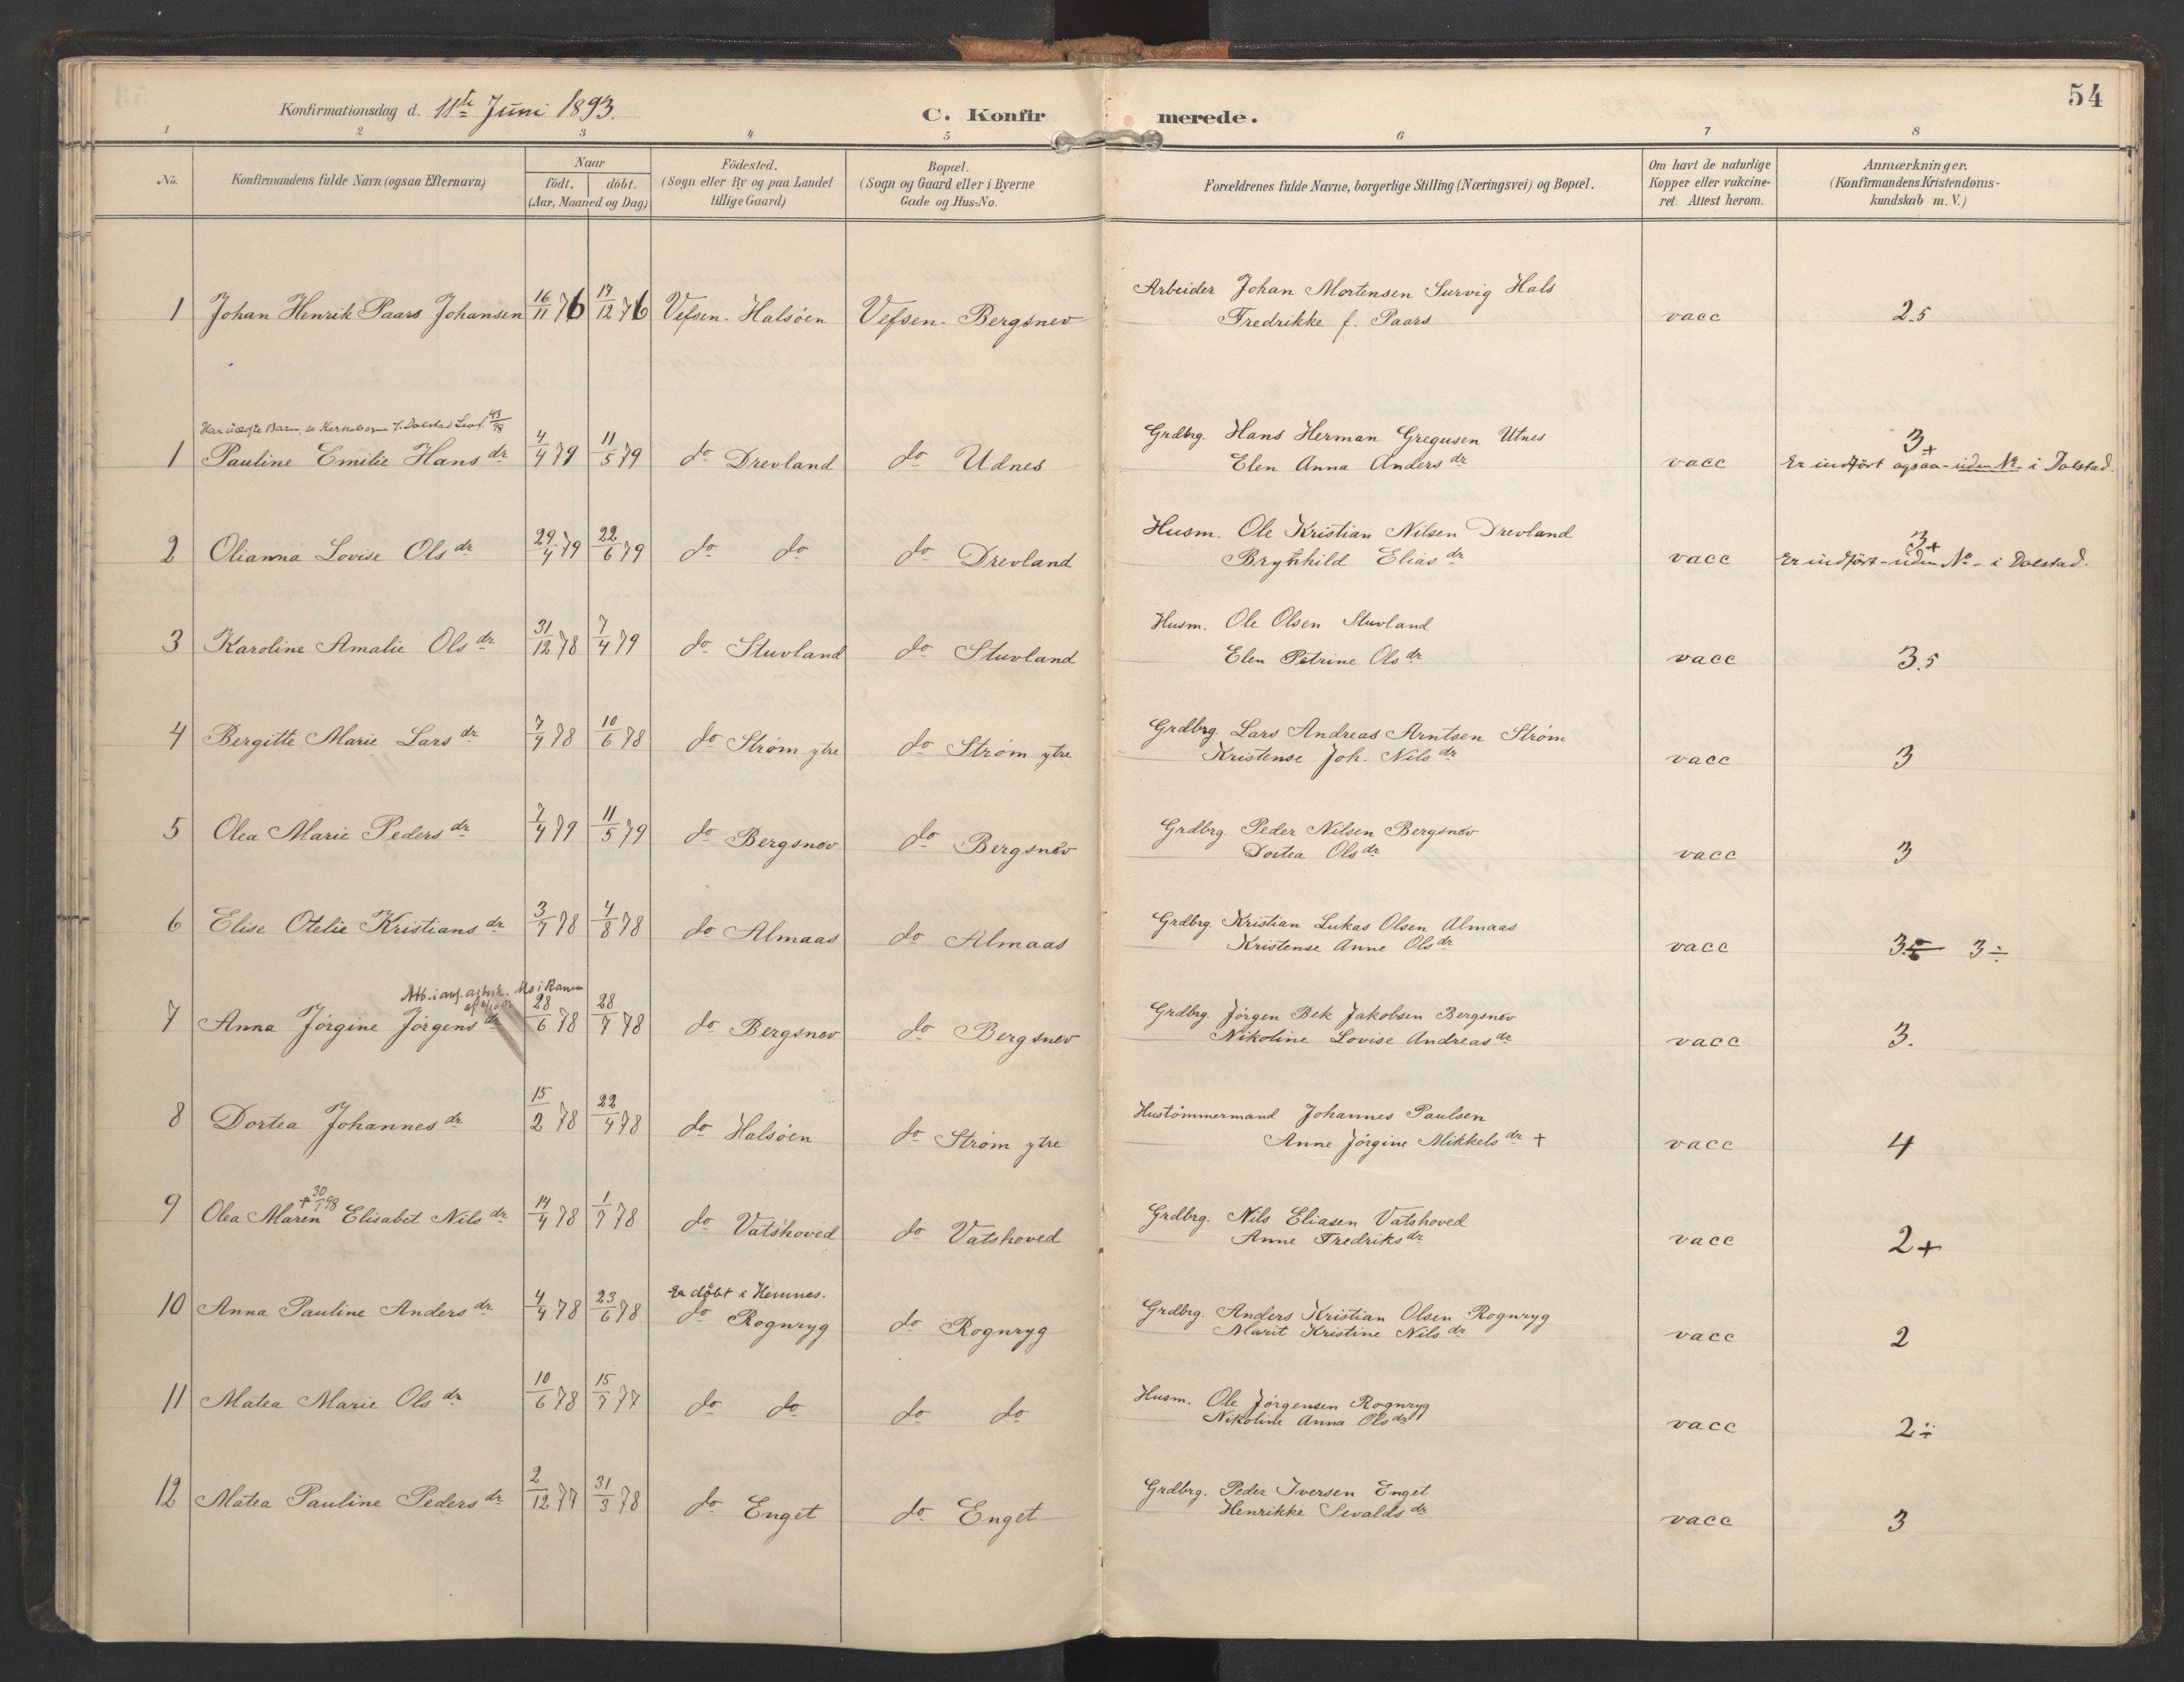 54
Konfirmationsdag d. 11te Juni 1893.
C. Konfirmerede.
1 2 3 4 5 6 7 8
No.
Konfirmandens fulde Navn (ogsaa Efternavn)
Naar
födt. döbt.
(Aar, Maaned og Dag)
Födested.
(Sogn eller By og paa Landet
tillige Gaard)
Bopæl.
(Sogn og Gaard eller i Byerne
Gade og Hus-No.
Forældrenes fulde Navne, borgerlige Stilling (Næringsvei) og Bopæl.
Om havt de naturlige
Kopper eller vakcine-
ret. Attest herom.
Anmærkninger.
(Konfirmandens Kristendoms-
kundskab m. V.)
1 Johan Henrik Paars Johansen 16/11 76 17/12 76 Vefsen - Halsøen Vefsen - Bergsnev Arbeider Johan Mortensen Survig Hals
Fredrikke f. Paars vacc 2.5
Har uægte Barn, se Kirkebogen f. Dolstad 43/98
1 Pauline Emilie Hansdr 4/4 79 11/5 79 do Drevland do Udnes Grdbrg. Hans Herman Gregusen Utnes
Elen Anna Andersdr vacc 3+
Er indført ogsaa - uden No - i Dolstad.
2 Olianna Lovise Olsdr 29/4 79 22/6 79 do do do Drevland Husm. Ole Kristian Nilsen Drevland
Brynhild Eliasdr vacc 3+
Er indført - uden No - i Dolstad.
3 Karoline Amalie Olsdr 31/12 78 7/4 79 do Stuvland do Stuvland Husm. Ole Olsen Stuvland
Elen Petrine Olsdr vacc 3.5
4 Bergitte Marie Larsdr 7/4 78 10/6 78 do Strøm ytre do Strøm ytre Grdbrg. Lars Andreas Arntsen Strøm
Kristense Joh. Nilsdr vacc 3
5 Olea Marie Pedersdr 7/4 79 11/5 79 do Bergsnev do Bergsnev Grdbrg. Peder Nilsen Bergsnev
Dortea Olsdr vacc 3
6 Elise Otelie Kristiansdr 3/7 78 4/8 78 do Almaas do Almaas Grdbrg. Kristian Lukas Olsen Almaas
Kristense Anne Olsdr vacc 3.5 3÷
Mo i Ranen
7 Anna Jörgine Jörgensdr 28/6 78 28/7 78 do Bergsnev do Bergsnev Grdbrg. Jörgen Bek Jakobsen Bergsnev
Nikoline Lovise Andreasdr vacc 3.
8 Dortea Johannesdr 15/2 78 22/4 78 do Halsøen do Strøm ytre Hustömmermand Johannes Paulsen
Anne Jörgine Mikkelsdr + vacc 4
+ 30/7 98
9 Olea Maren Elisabet Nilsdr 14/4 78 1/7 78 do Vatshoved do Vatshoved Grdbrg. Nils Eliasen Vatshoved
Anne Fredriksdr vacc 2+
Er døbt i Hemnes.
10 Anna Pauline Andersdr 4/4 78 23/6 78 do Rognryg do Rognryg Grdbrg. Anders Kristian Olsen Rognryg
Marit Kristine Nilsdr vacc 2
11 Matea Marie Olsdr 10/6 78 15/7 77 do do do do Husm. Ole Jörgensen Rognryg
Nikoline Anna Olsdr vacc 2÷
12 Matea Pauline Pedersdr 2/12 77 31/3 78 do Enget do Enget Grdbrg. Peder Iversen Enget
Henrikke Sevaldsdr vacc 3